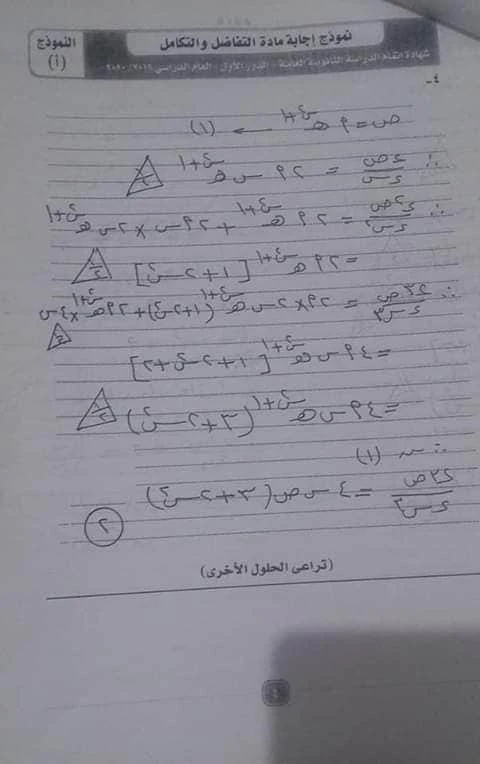 نموذج إجابة مادة التفاضل والتكامل
النموذج
(أ)
شهادة إتمام الدراسة الثانوية العامة - الدور الأول - العام الدراسي
٤-
ص = م هـ^(س٢+١) ← (١)
∴ ءص/ءس = ٢ م س هـ^(س٢+١)
∴ ء٢ص/ءس٢ = ٢ م هـ^(س٢+١) + ٢ م س × ٢ س هـ^(س٢+١)
= ٢ م هـ^(س٢+١) [١ + ٢ س٢]
∴ ء٣ص/ءس٣ = ٢ م × ٢ س هـ^(س٢+١) (١ + ٢ س٢) + ٢ م هـ^(س٢+١) × ٤ س
= ٤ م س هـ^(س٢+١) [١ + ٢ س٢ + ٢]
= ٤ م س هـ^(س٢+١) (٣ + ٢ س٢)
(١)
ء٣ص/ءس٣ = ٤ س ص (٣ + ٢ س٢)
٢
(تراعى الحلول الأخرى)